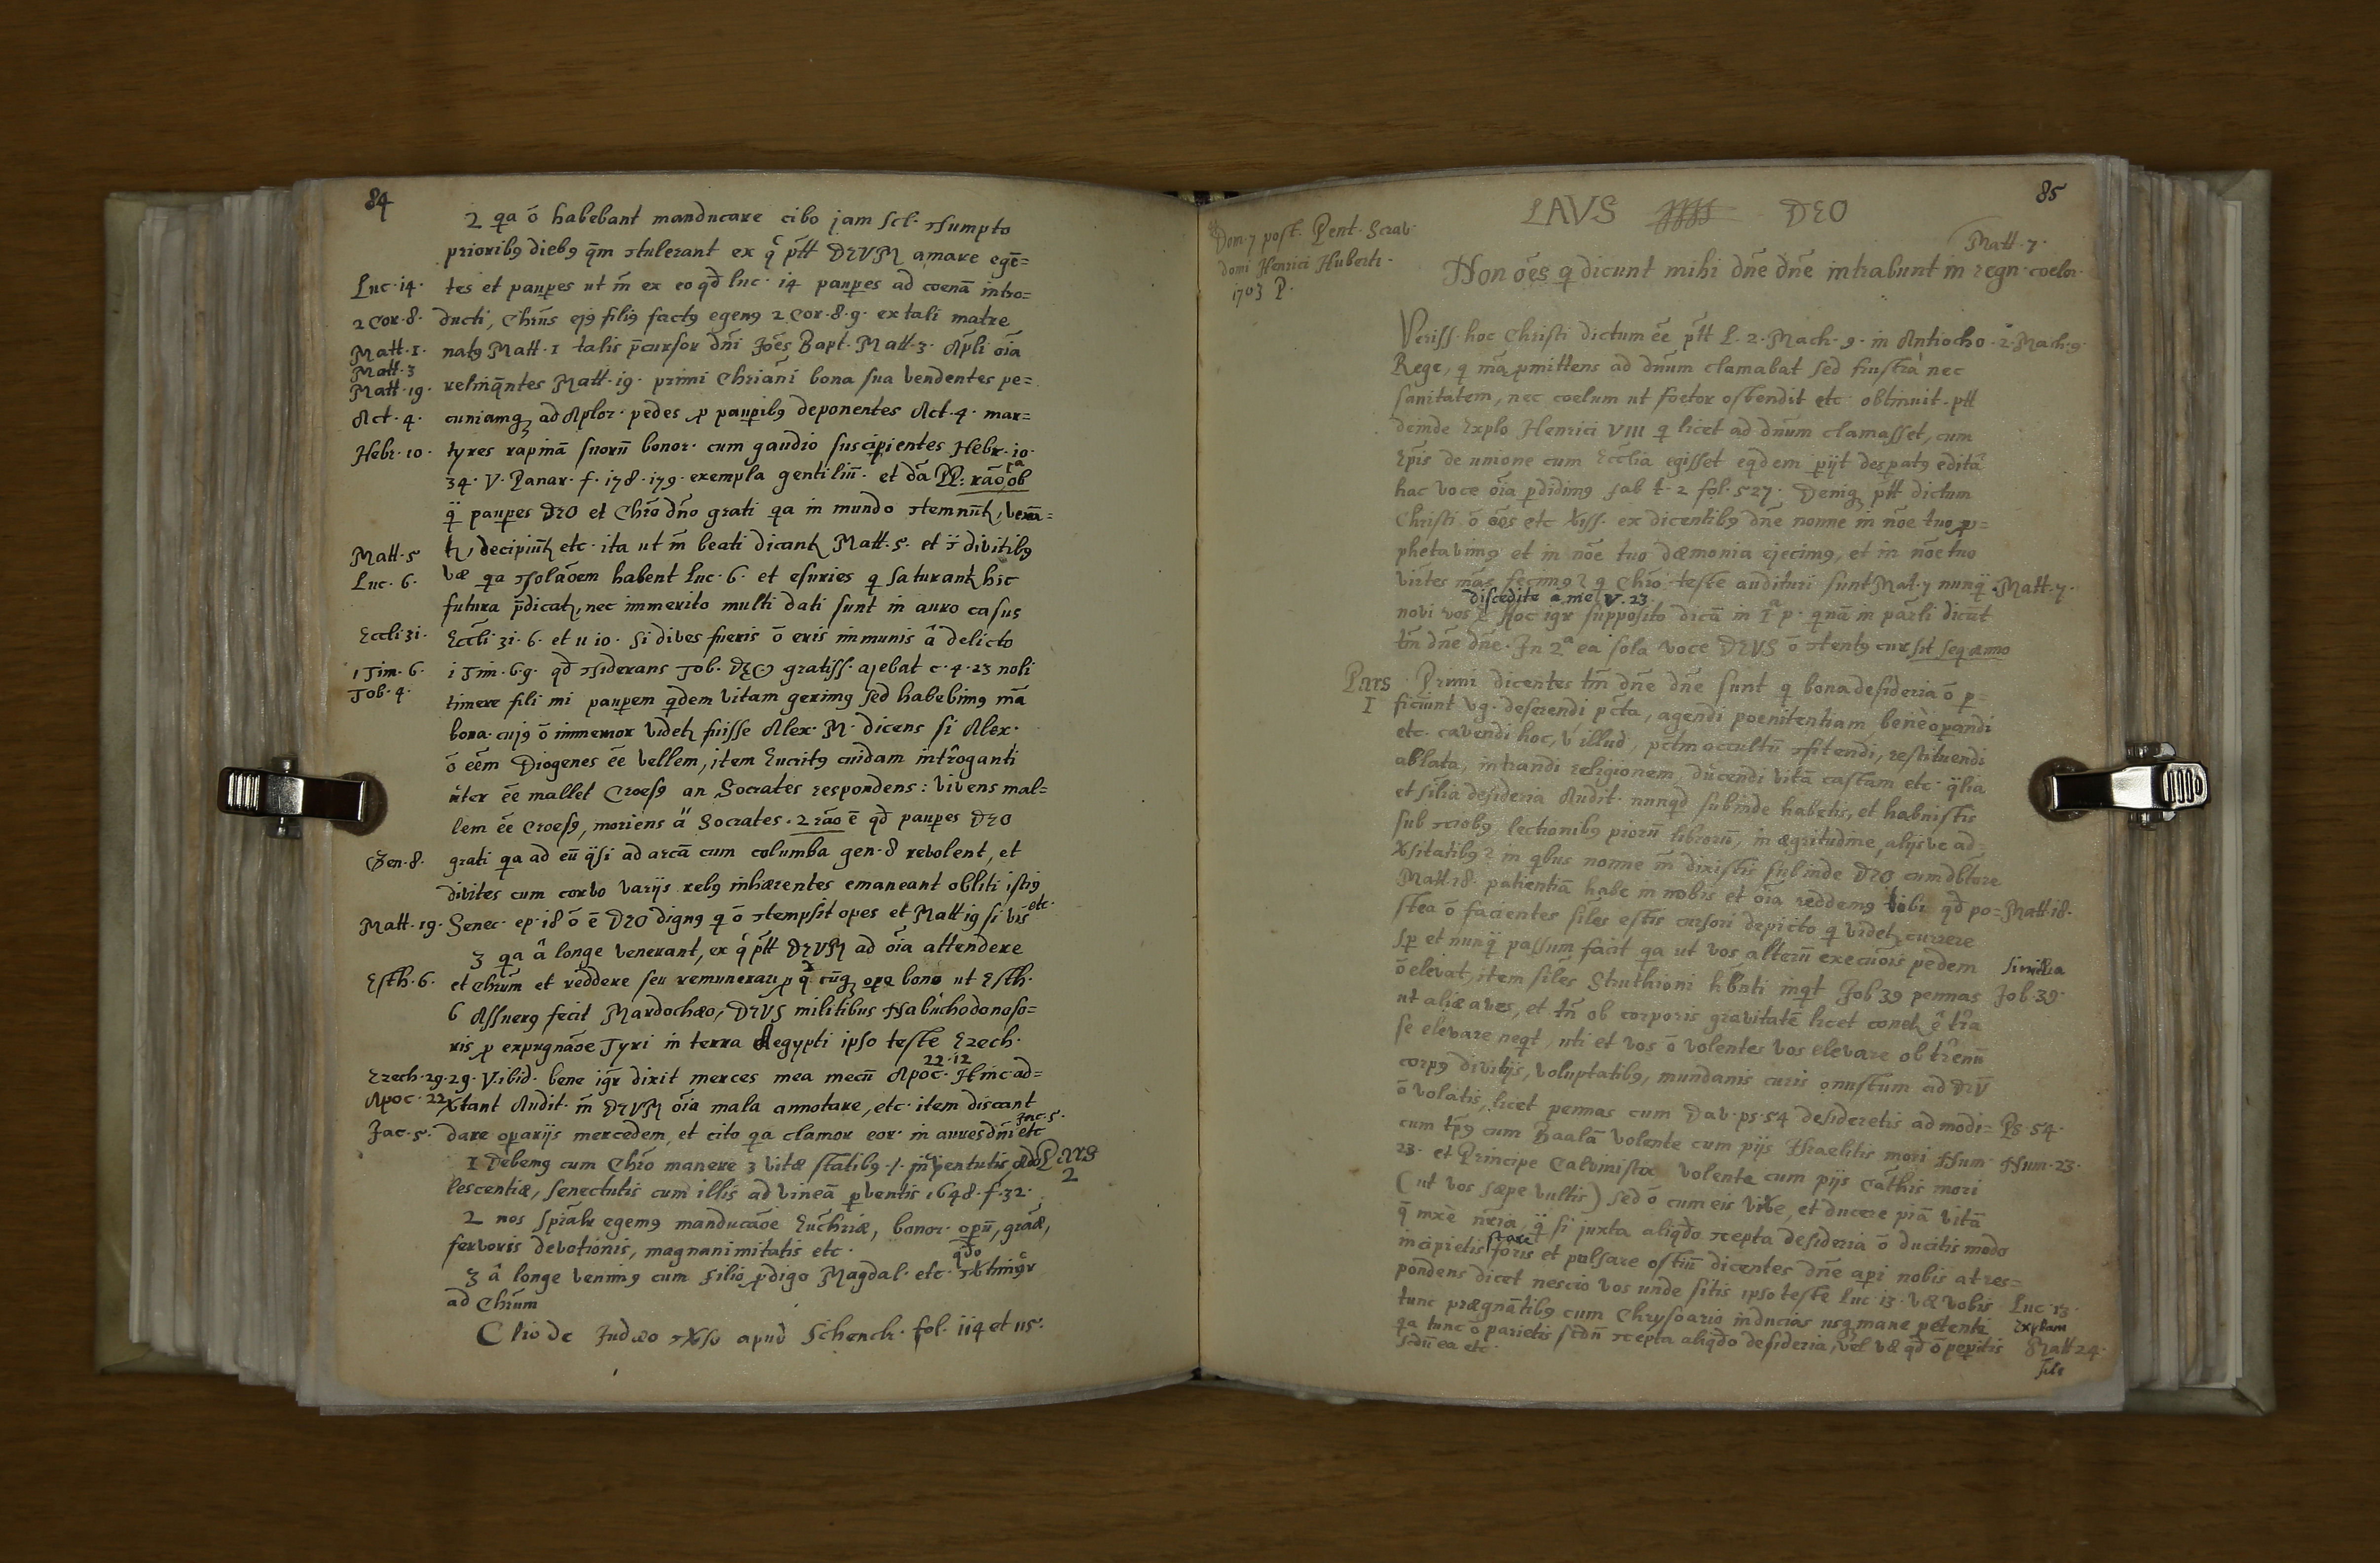 84
2 qa ō habebant manducare cibo jam scl. ɔsumpto
prioribꝰ diebꝰ q̄m ɔtulerant ex q̊ ptt DEVM amare egē=
Luc. 14. tes et paupes ut m̄ ex eo qđ luc. 14 paupes ad coenā intro=
2 Cor. 8. ducti, Chrūs ejꝰ filiꝰ factꝰ egenꝰ 2 Cor. 8. 9. ex tali matre
Matt. 1. natꝰ Matt. 1 talis p̄cursor dn̄i Joēs Bapt. Matt. 3. Apli oīa
Matt. 3
Matt. 19. relinq̄ntes Matt. 19. primi Chriāni bona sua vendentes pe=
Act. 4. cuniamq₃ ad Aplor. pedes p paupibꝰ deponentes Act. 4. mar=
Hebr. 10. tyres rapinā suorū bonor. cum gaudio suscipientes Hebr. 10.
34. V. Panar. f. 178. 179. exempla gentiliū. et dā PP. rāo 1a ob
q̄ paupes DEO et Chrō dn̄o grati qa in mundo ɔtemnūt,
Matt. 5 decipiūt etc. ita ut m̄ beati dicant Matt. 5. et divitibꝰ
Luc. 6. væ qa ɔsolāoem habent Luc. 6. et esuries q saturant hic
futura p̄dicat, nec immerito multi dati sunt in auro casus
Eccli 31. Eccli 31. 6. et u 10. si dives fueris ō eris immunis â delicto
1 Tim. 6. 1 Tim. 6. 9. qđ ɔsiderans Tob. DEO gratiss. ajebat c. 4. 23 noli
Tob. 4. timere fili mi paupem qdem vitam gerimꝰ sed habebimꝰ m̄a
bona. cujꝰ ō immemor videt fuisse Alex. M. dicens si Alex.
ō eēm Diogenes eē vellem, item Eucritꝰ cuidam intrôganti
uter eē mallet Croesꝰ an Socrates respondens: vivens mal=
lem eē Croesꝰ, moriens Socrates. 2 rāo ē qđ paupes DEO
Gen. 8. grati qa ad eū q̄si ad arcā cum columba gen. 8 revolent, et
divites cum corvo varijs rebꝰ inhærentes emaneant obliti istiꝰ
Matt. 19. Senec. ep. 18 ō ē DEO dignꝰ q ō ɔtempsit opes et Matt 19 si vis etc.
3 qa â longe venerant, ex q̊ ptt DEVM ad oīa attendere
Esth. 6. et chrūm et reddere seu remunerari p q cūq₃ ope bono ut Esth.
6 Assuerꝰ fecit Mardochæo, DEVS militibus Nabuchodonoso=
ris p expugnāoe Tyri in terra Aegypti ipso teste Ezech.
Ezech. 29. 29. V. ibid. bene igr dixit merces mea mecū Apoc. 22. 12 Hinc ad=
Apoc. 22 Xtant Audit. m̄ DEVM oīa mala annotare, etc. item discant
Jac. 5. dare operarijs mercedem, et cito qa clamor eor. in aures dn̄i etc Jac. 5.
1 Debemꝰ cum Chrō manere 3 vitæ statibꝰ .j. juventutis ado Pars
2
lescentiæ, senectutis cum illis ad vineā pventis 1648. f. 32.
2 nos spiālr egemꝰ manducāoe Euchriæ, bonor. operū, grāæ,
fervoris devotionis, magnanimitatis etc.
3 â longe venimꝰ cum filio pdigo Magdal. etc. qđo
ad Chrūm
Clio de Judæo ɔXso apud Schench. fol. 114 et 115.
85
LAVS DEO
Dom. 7 post. Pent. Scrab.
domi Henrici Huberti.
1703 P.
Matt. 7.
Non oēs q dicunt mihi dn̄e dn̄e intrabunt in regn. coelor.
Veriss. hoc Christi dictum eē ptt L. 2. Mach. 9. in Antiocho 2. Mach. 9
Rege, q m̄a pmittens ad dn̄um clamabat sed frustrà nec
sanitatem, nec coelum ut foetor ostendit etc. obtinuit. ptt
deinde Explo Henrici VIII q licet ad dn̄um clamasset, cum
Epīs de unione cum Ecclia egisset eqdem pijt despatꝰ editâ
hac voce oīa pdidimꝰ fab t. 2 fol. 527. Deniq₃ ptt dictum
Christi ō oēs etc Xiss. ex dicentibꝰ dn̄e nonne in nōe tuo p=
phetavimꝰ et in nōe tuo dæmonia ejecimꝰ, et in nōe tuo
virtes m̄as fecimꝰ? q Chrō teste audituri sunt Mat. 7 nunq̄ Matt. 7.
discedite a me v. 23
novi vos Hoc igr supposito dicā in 1ª p. qnā in pārli dicūt
tm̄ dn̄e dn̄e. In 2ª ea sola voce DEVS ō ɔtentꝰ cur sit seq. domo
Pars
1
Primi dicentes tm̄ dn̄e dn̄e sunt q bona desideria ō p=
ficiunt vg. deserendi pc̄ta, agendi poenitentiam, benè opandi
etc. cavendi hoc, v illud, pctm occultū ɔfitendi, restituendi
ablata, intrandi religionem, ducendi vitā castam etc. q̄lia
et silia desideria Audit. nunqđ subinde habetis, et habuistis
sub ɔciobꝰ, lectionibꝰ piorū librorū, in ægritudine, alijsve ad=
Xsitatibꝰ? in qbus nonne m̄ dixistis subinde DEO cum dbtore
Matt 18. patientiā habe in nobis et oīa reddemꝰ tibi qđ po= Matt. 18.
stea ō facientes siles estis cursori depicto q videt currere
sp et nunq̄ passum facit qa ut vos alterū execuōis pedem similia
ō elevat, item siles Struthioni hbnti inqt Job 39 pennas Job. 39.
ut aliæ aves, et tn̄ ob corporis gravitatē licet conet ê trâ
se elevare neqt, uti et vos ō volentes vos elevare ob trenū
corpꝰ divitijs, voluptatibꝰ, mundanis curis onustum ad DEV̄
ō volatis, licet pennas cum Dav. ps. 54 desideretis ad modi= Ps. 54.
cum tpꝰ cum Baalā volente cum pijs Israelitis mori Num. Num. 23.
23. et Principe Calvinistæ volente cum pijs cathis mori
(ut vos sæpe vultis) sed ō cum eis vivere, et ducere piā vitā
q̄ mxè nria, q̄ si juxta aliqdo ɔcepta desideria ō ducitis modo
incipietis stare foris et pulsare ostiū dicentes dn̄e api nobis at res=
pondens dicet nescio vos unde sitis ipso teste Luc. 13. væ vobis Luc. 13.
tunc prægnātibꝰ cum Chrysoario inducias usq₃ mane petenti Explum
qa tunc ō parietis scdū ɔcepta aliqdo desideria, vel væ qđ ō peritis Matt 24.
scdū ea etc. sile